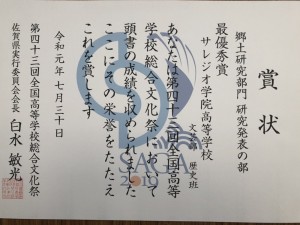 賞状
郷土研究部門 研究発表の部
最優秀賞
サレジオ学院高等学校
文芸部 歴史班
あなたは第四十三回全国高等
学校総合文化祭において
頭書の成績を収められました
ここにその栄誉をたたえ
これを賞します
令和元年七月三十日
第四十三回全国高等学校総合文化祭
佐賀県実行委員会会長 白水敏光
SAGA
2019